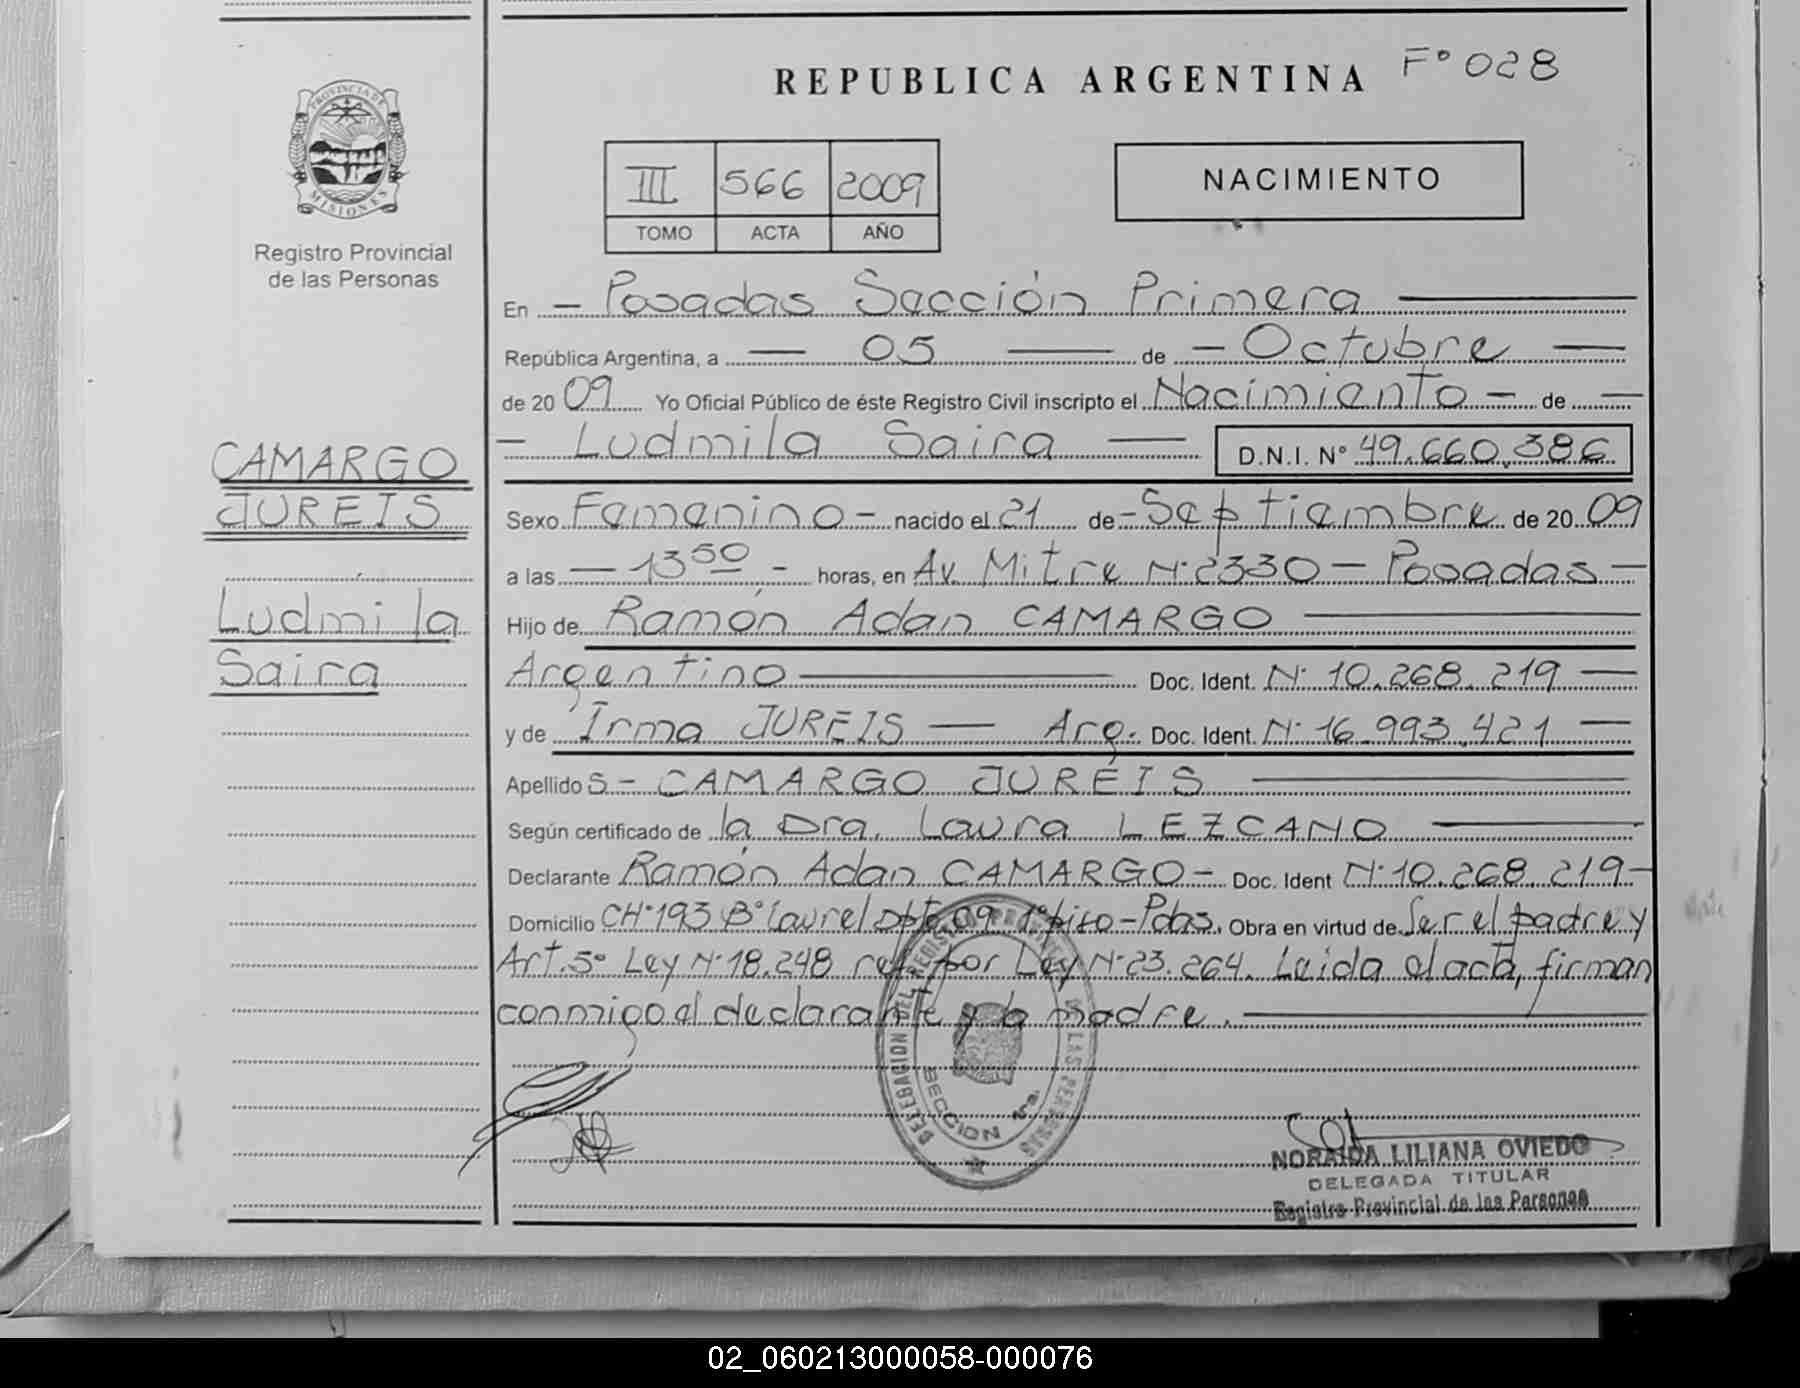 REPUBLICA ARGENTINA Fº 028
PROVINCIA DE
MISIONES
Registro Provincial
de las Personas
III 566 2009
TOMO ACTA AÑO
NACIMIENTO
En - Posadas Sección Primera
República Argentina, a - 05 - de - Octubre -
de 2009 Yo Oficial Público de éste Registro Civil inscripto el Nacimiento - de -
- Ludmila Saira - D.N.I. Nº 49.660.386
CAMARGO
JUREIS
Ludmila
Saira
Sexo Femenino - nacido el 21 de - Septiembre de 2009
a las - 13 50 - horas, en Av. Mitre Nº 2330 - Posadas -
Hijo de Ramón Adan CAMARGO
Argentino Doc. Ident. Nº 10.268.219
y de Irma JUREIS - Arg. Doc. Ident. Nº 16.993.421
Apellido s - CAMARGO JUREIS
Según certificado de la Dra. Laura LEZCANO
Declarante Ramón Adan CAMARGO - Doc. Ident Nº 10.268.219 -
Domicilio CHº 193 Bº Laurel Dpto 09 1º piso - Pdas. Obra en virtud de Ser el padre y
Art. 5º Ley Nº 18.248 ref. por Ley Nº 23.264. Leida el acta, firman
conmigo el declarante y la madre.
DELEGACION DEL REGISTRO PROVINCIAL DE LAS PERSONAS
SECCION 1ra.
NORAIDA LILIANA OVIEDO
DELEGADA TITULAR
Registro Provincial de las Personas
02_060213000058-000076